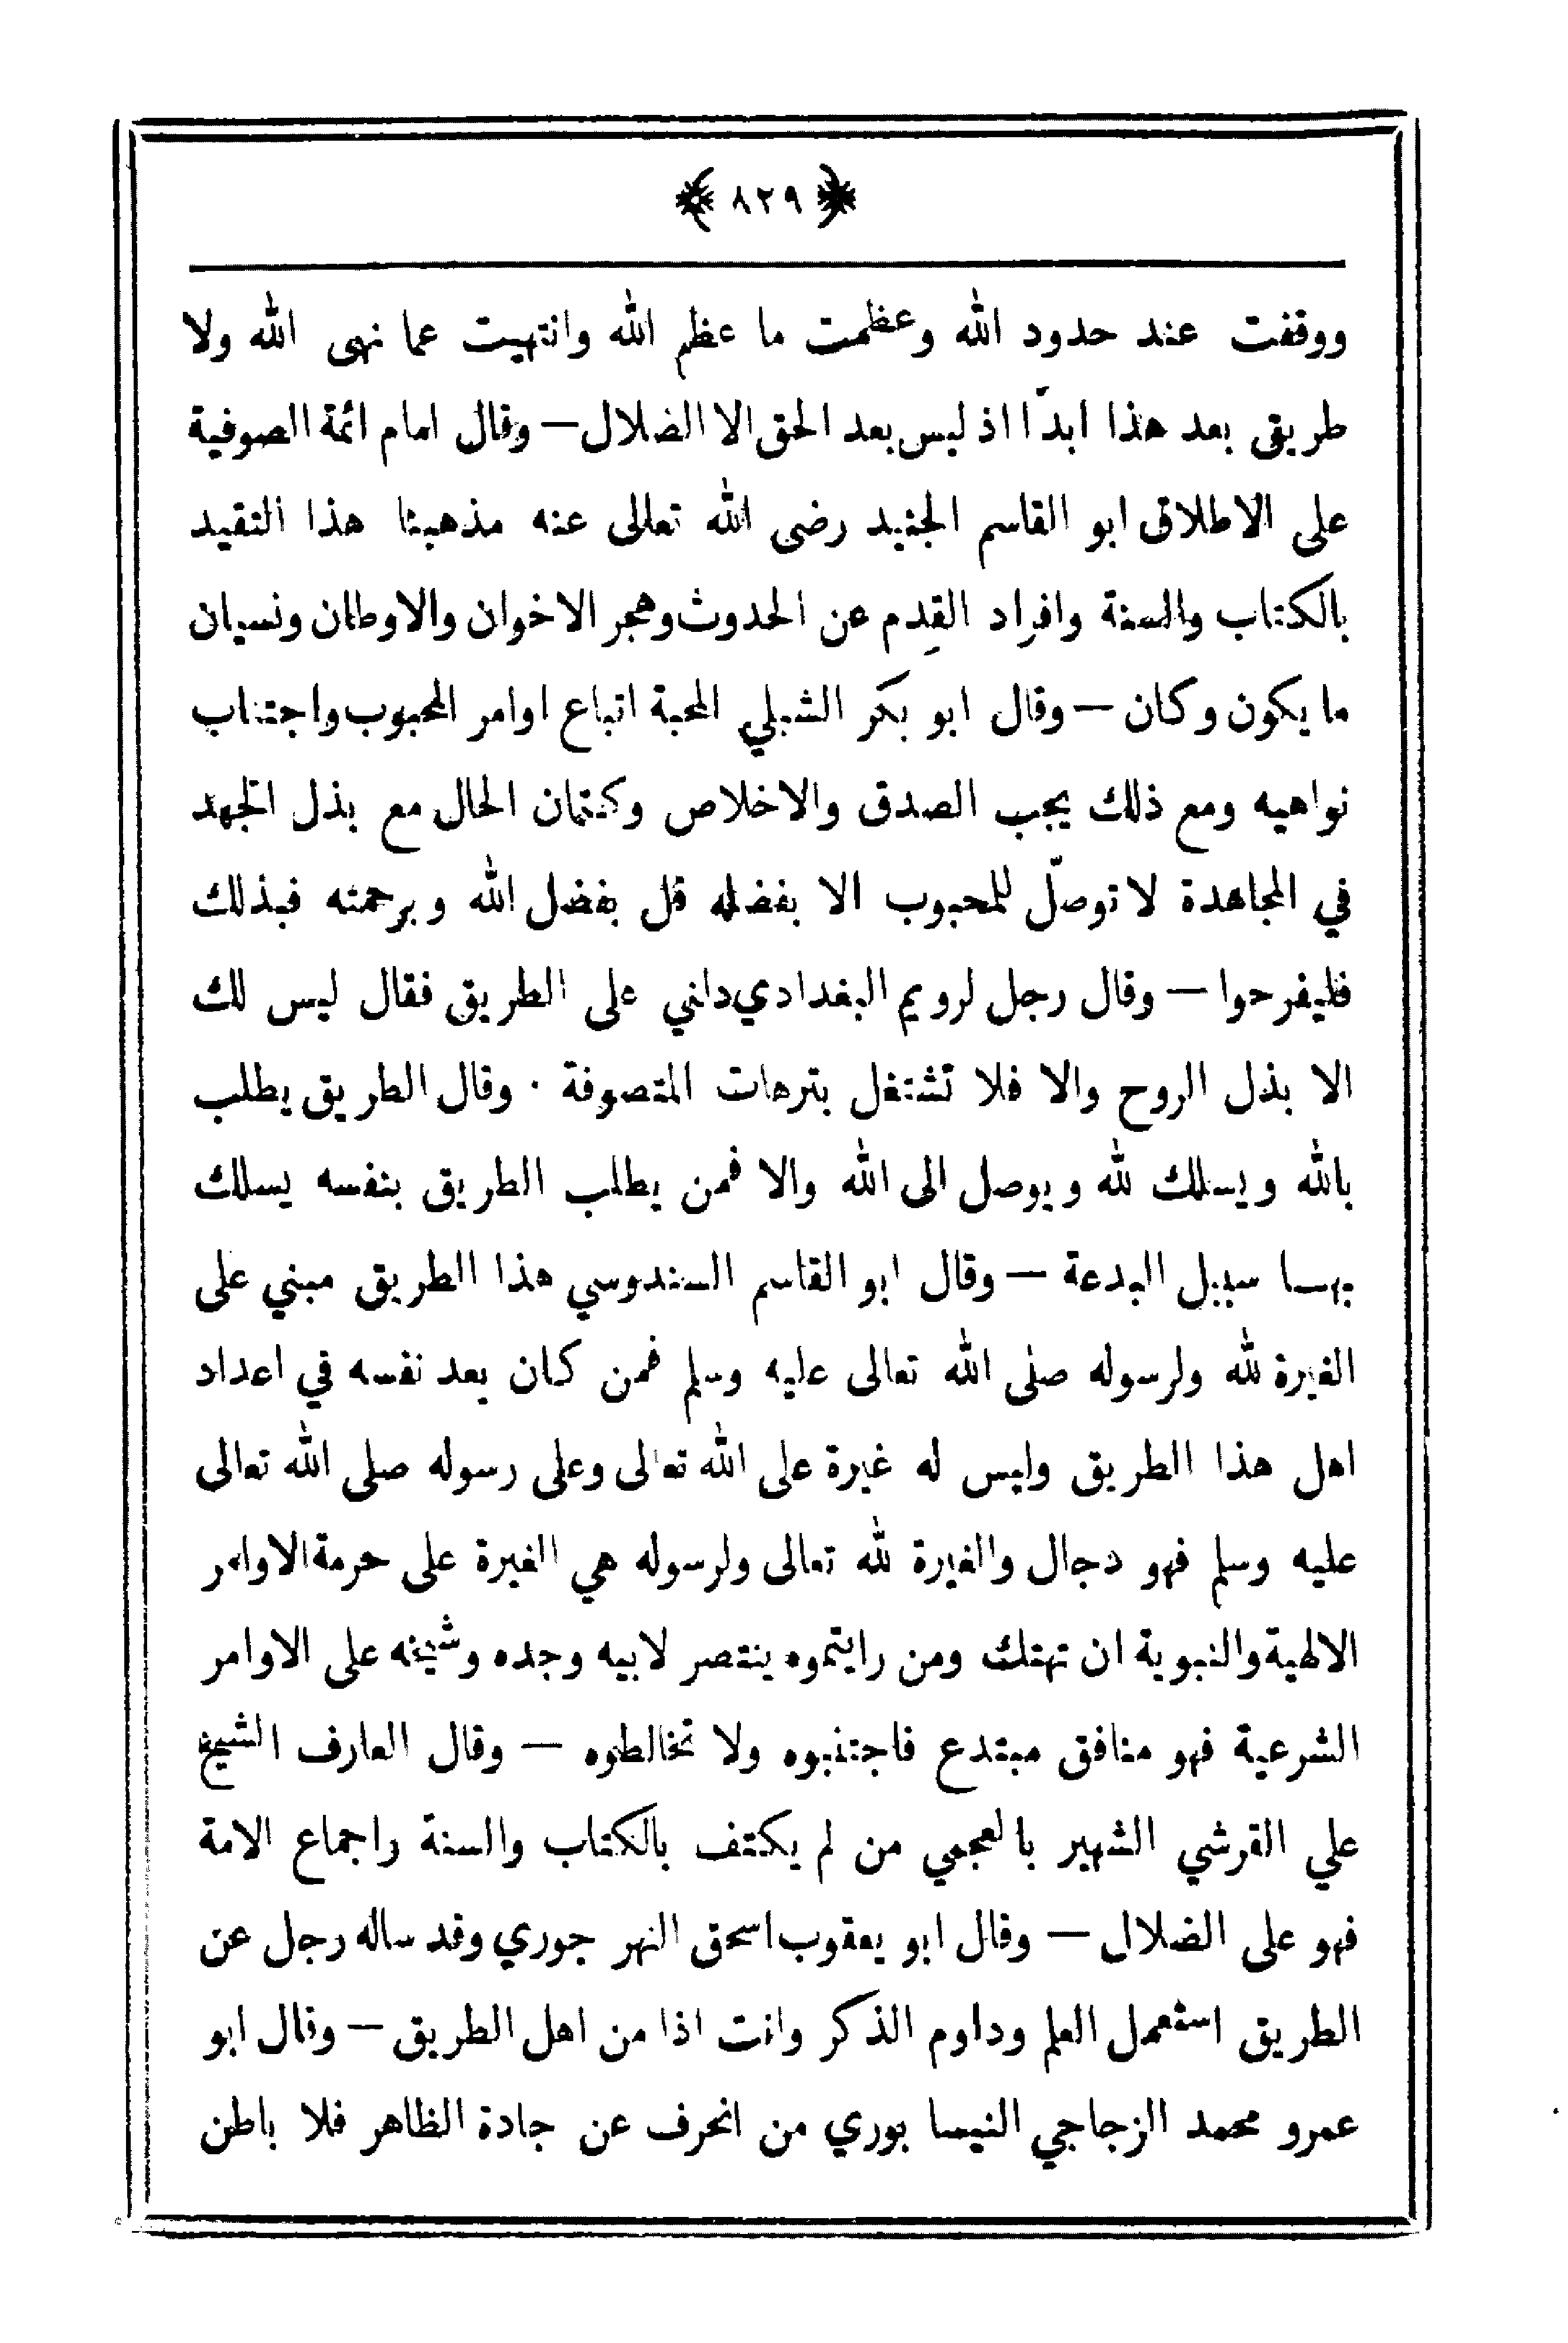 ﴿ ٨٢٩ ﴾
ووقفت عند حدود الله وعظمت ما عظم الله وانتهيت عما نهى الله ولا
طريق بعد هذا ابدًا اذ ليس بعد الحق الا الضلال — وقال امام ائمة الصوفية
على الاطلاق ابو القاسم الجنيد رضى الله تعالى عنه مذهبنا هذا التقيد
بالكتاب والسنة وافراد القِدم عن الحدوث وهجر الاخوان والاوطان ونسيان
ما يكون وكان — وقال ابو بكر الشبلي المحبة اتباع اوامر المحبوب واجتناب
نواهيه ومع ذلك يجب الصدق والاخلاص وكتمان الحال مع بذل الجهد
في المجاهدة لا توصّل للمحبوب الا بفضله قل بفضل الله وبرحمته فبذلك
فليفرحوا — وقال رجل لرويم البغدادي دلني على الطريق فقال ليس لك
الا بذل الروح والا فلا تشتغل بترهات المتصوفة · وقال الطريق يطلب
بالله ويسلك لله ويوصل الى الله والا فمن يطلب الطريق بنفسه يسلك
بها سبيل البدعة — وقال ابو القاسم السندوسي هذا الطريق مبني على
الغيرة لله ولرسوله صلى الله تعالى عليه وسلم فمن كان يعد نفسه في اعداد
اهل هذا الطريق وليس له غيرة على الله تعالى وعلى رسوله صلى الله تعالى
عليه وسلم فهو دجال والغيرة لله تعالى ولرسوله هي الغيرة على حرمة الاوامر
الالهية والنبوية ان تهتك ومن رايتموه ينتصر لابيه وجده وشيخه على الاوامر
الشرعية فهو منافق مبتدع فاجتنبوه ولا تخالطوه — وقال العارف الشيخ
علي القرشي الشهير بالعجمي من لم يكتف بالكتاب والسنة واجماع الامة
فهو على الضلال — وقال ابو يعقوب اسحق النهر جوري وقد ساله رجل عن
الطريق استعمل العلم وداوم الذكر وانت اذا من اهل الطريق — وقال ابو
عمرو محمد الزجاجي النيسا بوري من انحرف عن جادة الظاهر فلا باطن